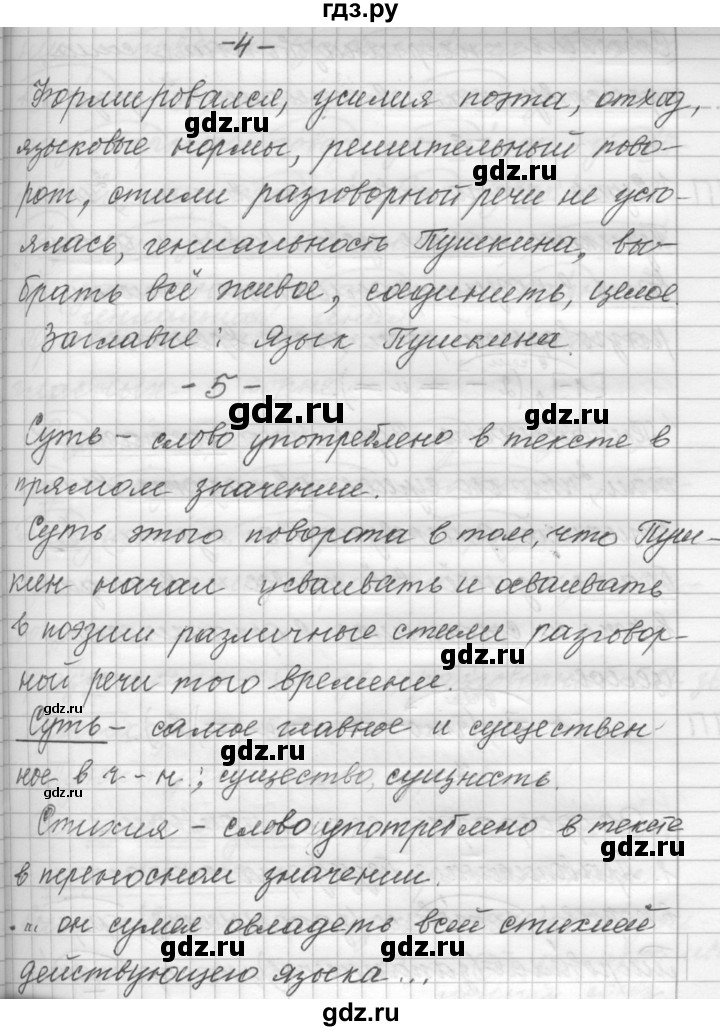 гдз.ру
-4-
Формировался, усилия поэта, отход,
gdz.ru
языковые нормы, решительный пово-
gdz.ru
рот, стили разговорной речи не усто-
ялась, гениальность Пушкина, вы-
брать всё живое, соединить, целое.
Заглавие: Язык Пушкина.
-5-
gdz.ru gdz.ru
Суть - слово употреблено в тексте в
прямом значении.
Суть этого поворота в том, что Пуш-
кин начал усваивать и осваивать
в поэзии различные стили разговор-
gdz.ru
ной речи того времени.
gdz.ru
Суть - самое главное и существен-
gdz.ru
ное в ч-н; существо, сущность.
gdz.ru
Стихия - слово употреблено в тексте
gdz.ru
в переносном значении.
... он сумел овладеть всей стихией
gdz.ru gdz.ru
действующего языка...
gdz.ru